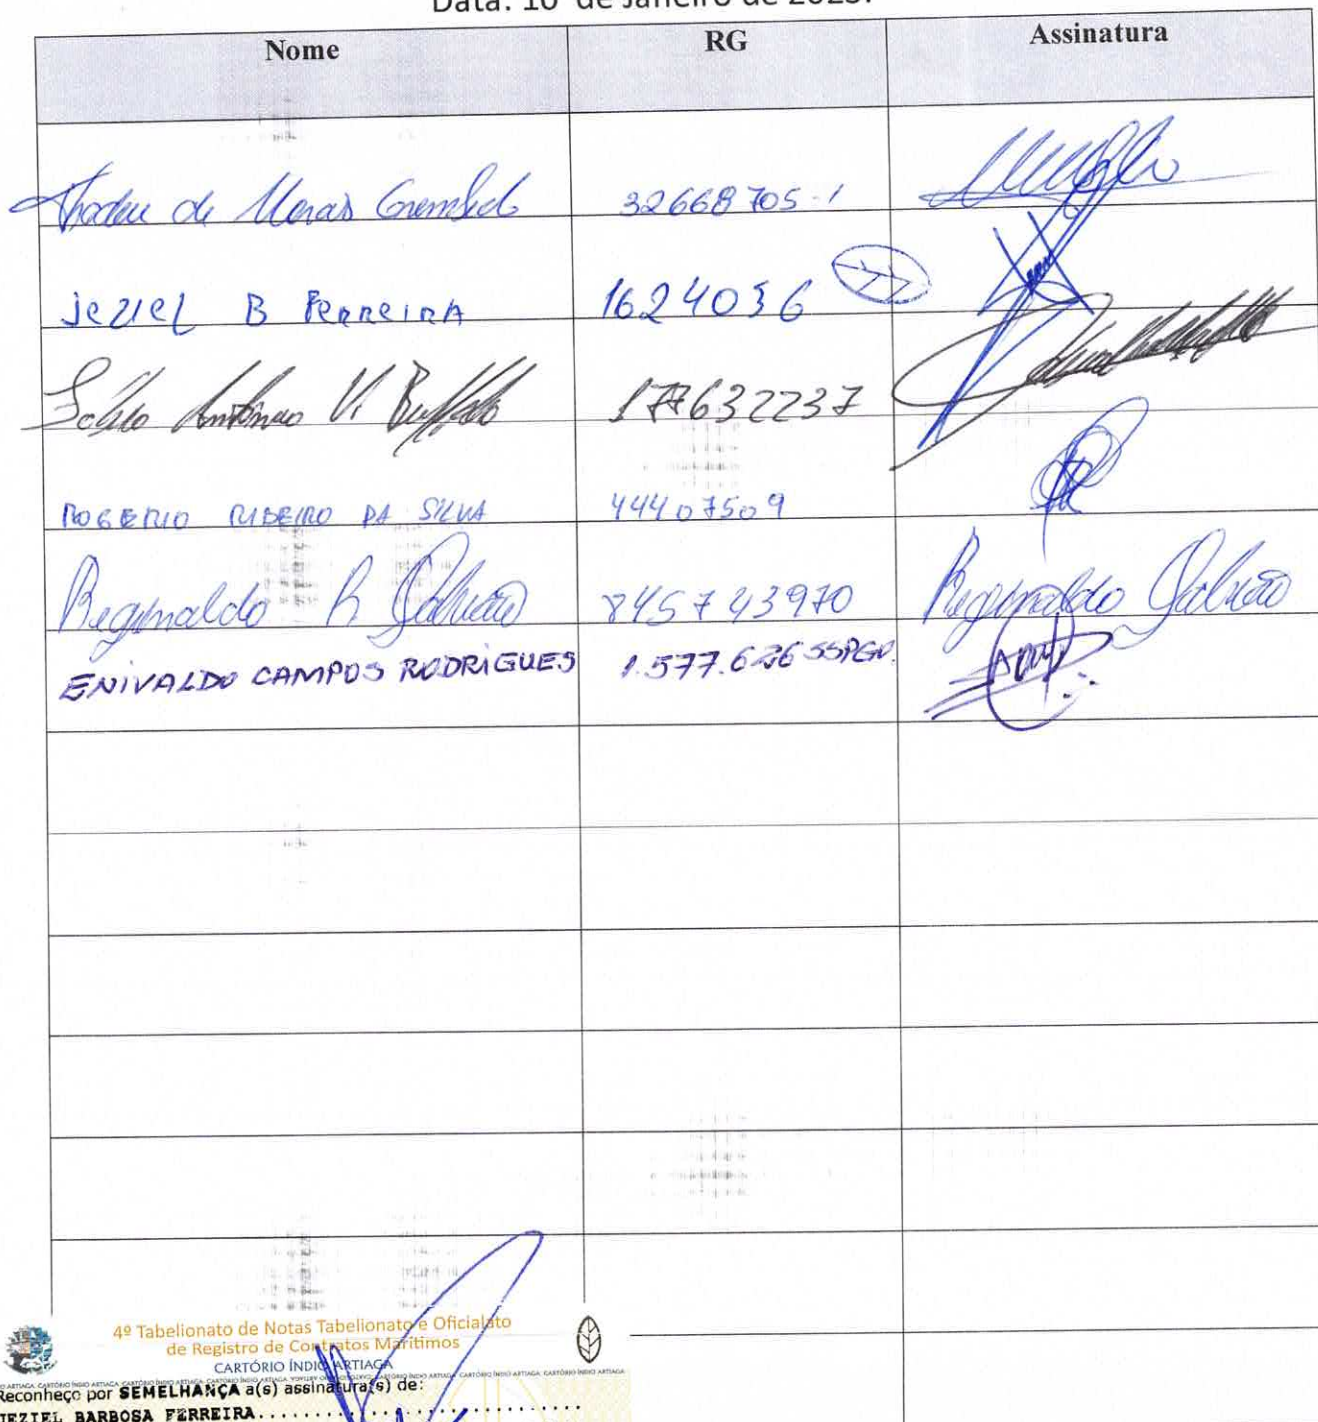 Data: 10 de Janeiro de 2023.
Nome RG Assinatura
Thadeu de Moras 32668705-1
Jeziel B FERREIRA 1624036
Antônio V. 177632237
ROGERIO RIBEIRO DA SILVA 44407509
Reginaldo R Galvão 845743970 Reginaldo Galvão
ENIVALDO CAMPOS RODRIGUES 1.577.626 SSPGO.
4º Tabelionato de Notas Tabelionato e Oficialato
de Registro de Contratos Marítimos
CARTÓRIO ÍNDIO ARTIAGA
Reconheço por SEMELHANÇA a(s) assinatura(s) de:
JEZIEL BARBOSA FERREIRA